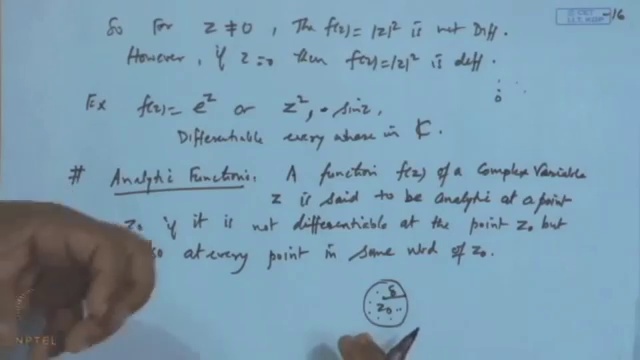 So For z ≠ 0, The f(z) = |z|² is not Diff.
However, if z=0 then f(z)=|z|² is diff.
0
Ex f(z) = e^z or z², sinz,
Differentiable every where in ₵.
# Analytic Function: A function f(z) of a Complex Variable
z is said to be analytic at a point
z₀ if it is not differentiable at the point z₀ but
so at every point in some nbd of z₀.
δ
z₀
I.I.T. KGP
NPTEL